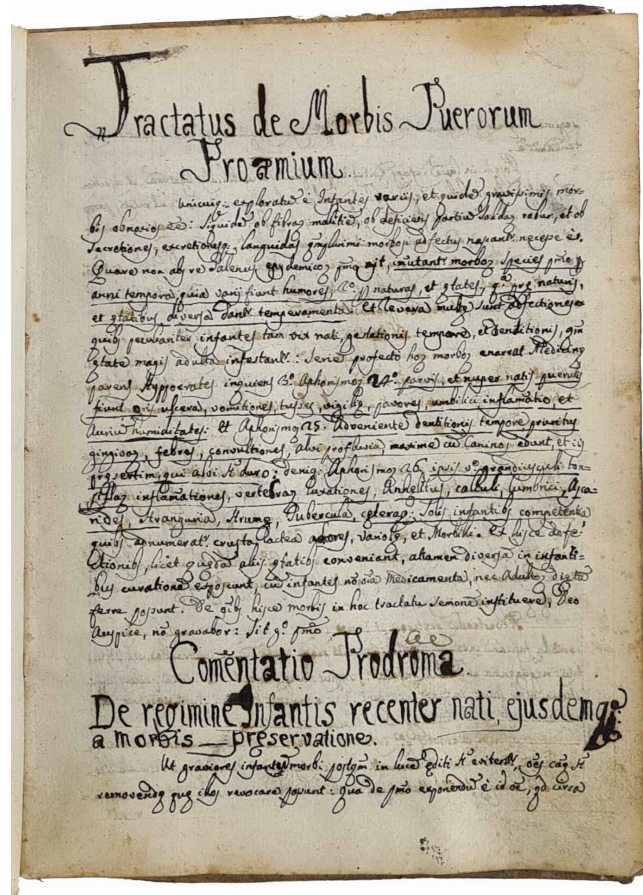 Tractatus de Morbis Puerorum
Proæmium
Unicuiq: exploratū ē Infantes variis, et quidē gravissimis mor=
bis obnoxios ēē: Siquidē ob fibraꝝ molitiē, ob deficiens partiū solidaꝝ robur, et ob
secretiones, excretionesq: languidas morbosi adfectus nascant necesse ē.
Quare non ab re Galenus epydemicoꝝ ait, inmutant morboꝝ species
anni tempora, quia varij fiunt humores, naturas, et ętates,
et ętatibus diversa dant temperamenta. Et levera multę sunt adfectiones
quib infantes tam vix nati, gestationis tempore, et dentitionis,
ętate magis adulta infestant.: Serie profecto hos morbos enarrat Medicinę
parens Hyppocrates inquiens 3º Aphorismoꝝ 24º. parvis, et nuper natis pueris
fiunt oris ulcera, vomitiones, tusses, vigilię, pavores, umbilici inflamatio, et
Auriū humiditates: et Aphorismo 25. Adveniente dentitionis tempore pruritus
gingivoꝝ, febres, convultiones, alvi profluvia, maxime cū caninos edunt, et iis
pręsertim, qui alvi st duro: deniq: Aphorismo 26 ipsis vº grandiusculi ton=
sillaꝝ inflamationes, vertebraꝝ luxationes, Anhelitus, calculi, lumbrici, Asca=
rides, Stranguria, Strumę, Tubercula, ceteraq: Solis infantib competentia
quib adnumerat crusta lactea achores, variolę, et Morbilli. Et hisce adfe=
ctionib, licet quędā aliis ętatib conveniant, attamen diversa in infanti=
bus curatione exposcunt, cū infantes Medicamenta, nec Adultoꝝ dieta
ferre possunt. De hisce morbis in hoc tractatu semonē instituere, Deo
Auspice, nō gravabor: Sit gº pmō
Comētatio Prodroma
De regimine Infantis recenter nati, ejusdemq:
a morbis _ pręservatione.
Ut graviores infantū morbi postqm in lucē editi st evitent, st
removendę quę illos revocare possunt: Qua de pmō exponendū ē id oē, qd circa